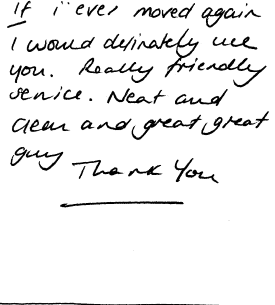 If i ever moved again
I would definately use
you. Really friendly
service. Neat and
clean and great, great
guy
Thank You